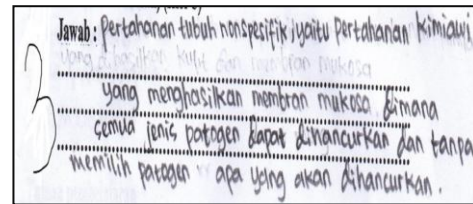 Jawab : Pertahanan tubuh nonspesifik yaitu Pertahanan kimiawi
yang dihasilkan kulit dan membran mukosa
3
yang menghasilkan membran mukosa dimana
semua jenis patogen dapat dihancurkan dan tanpa
memilih patogen apa yang akan dihancurkan.